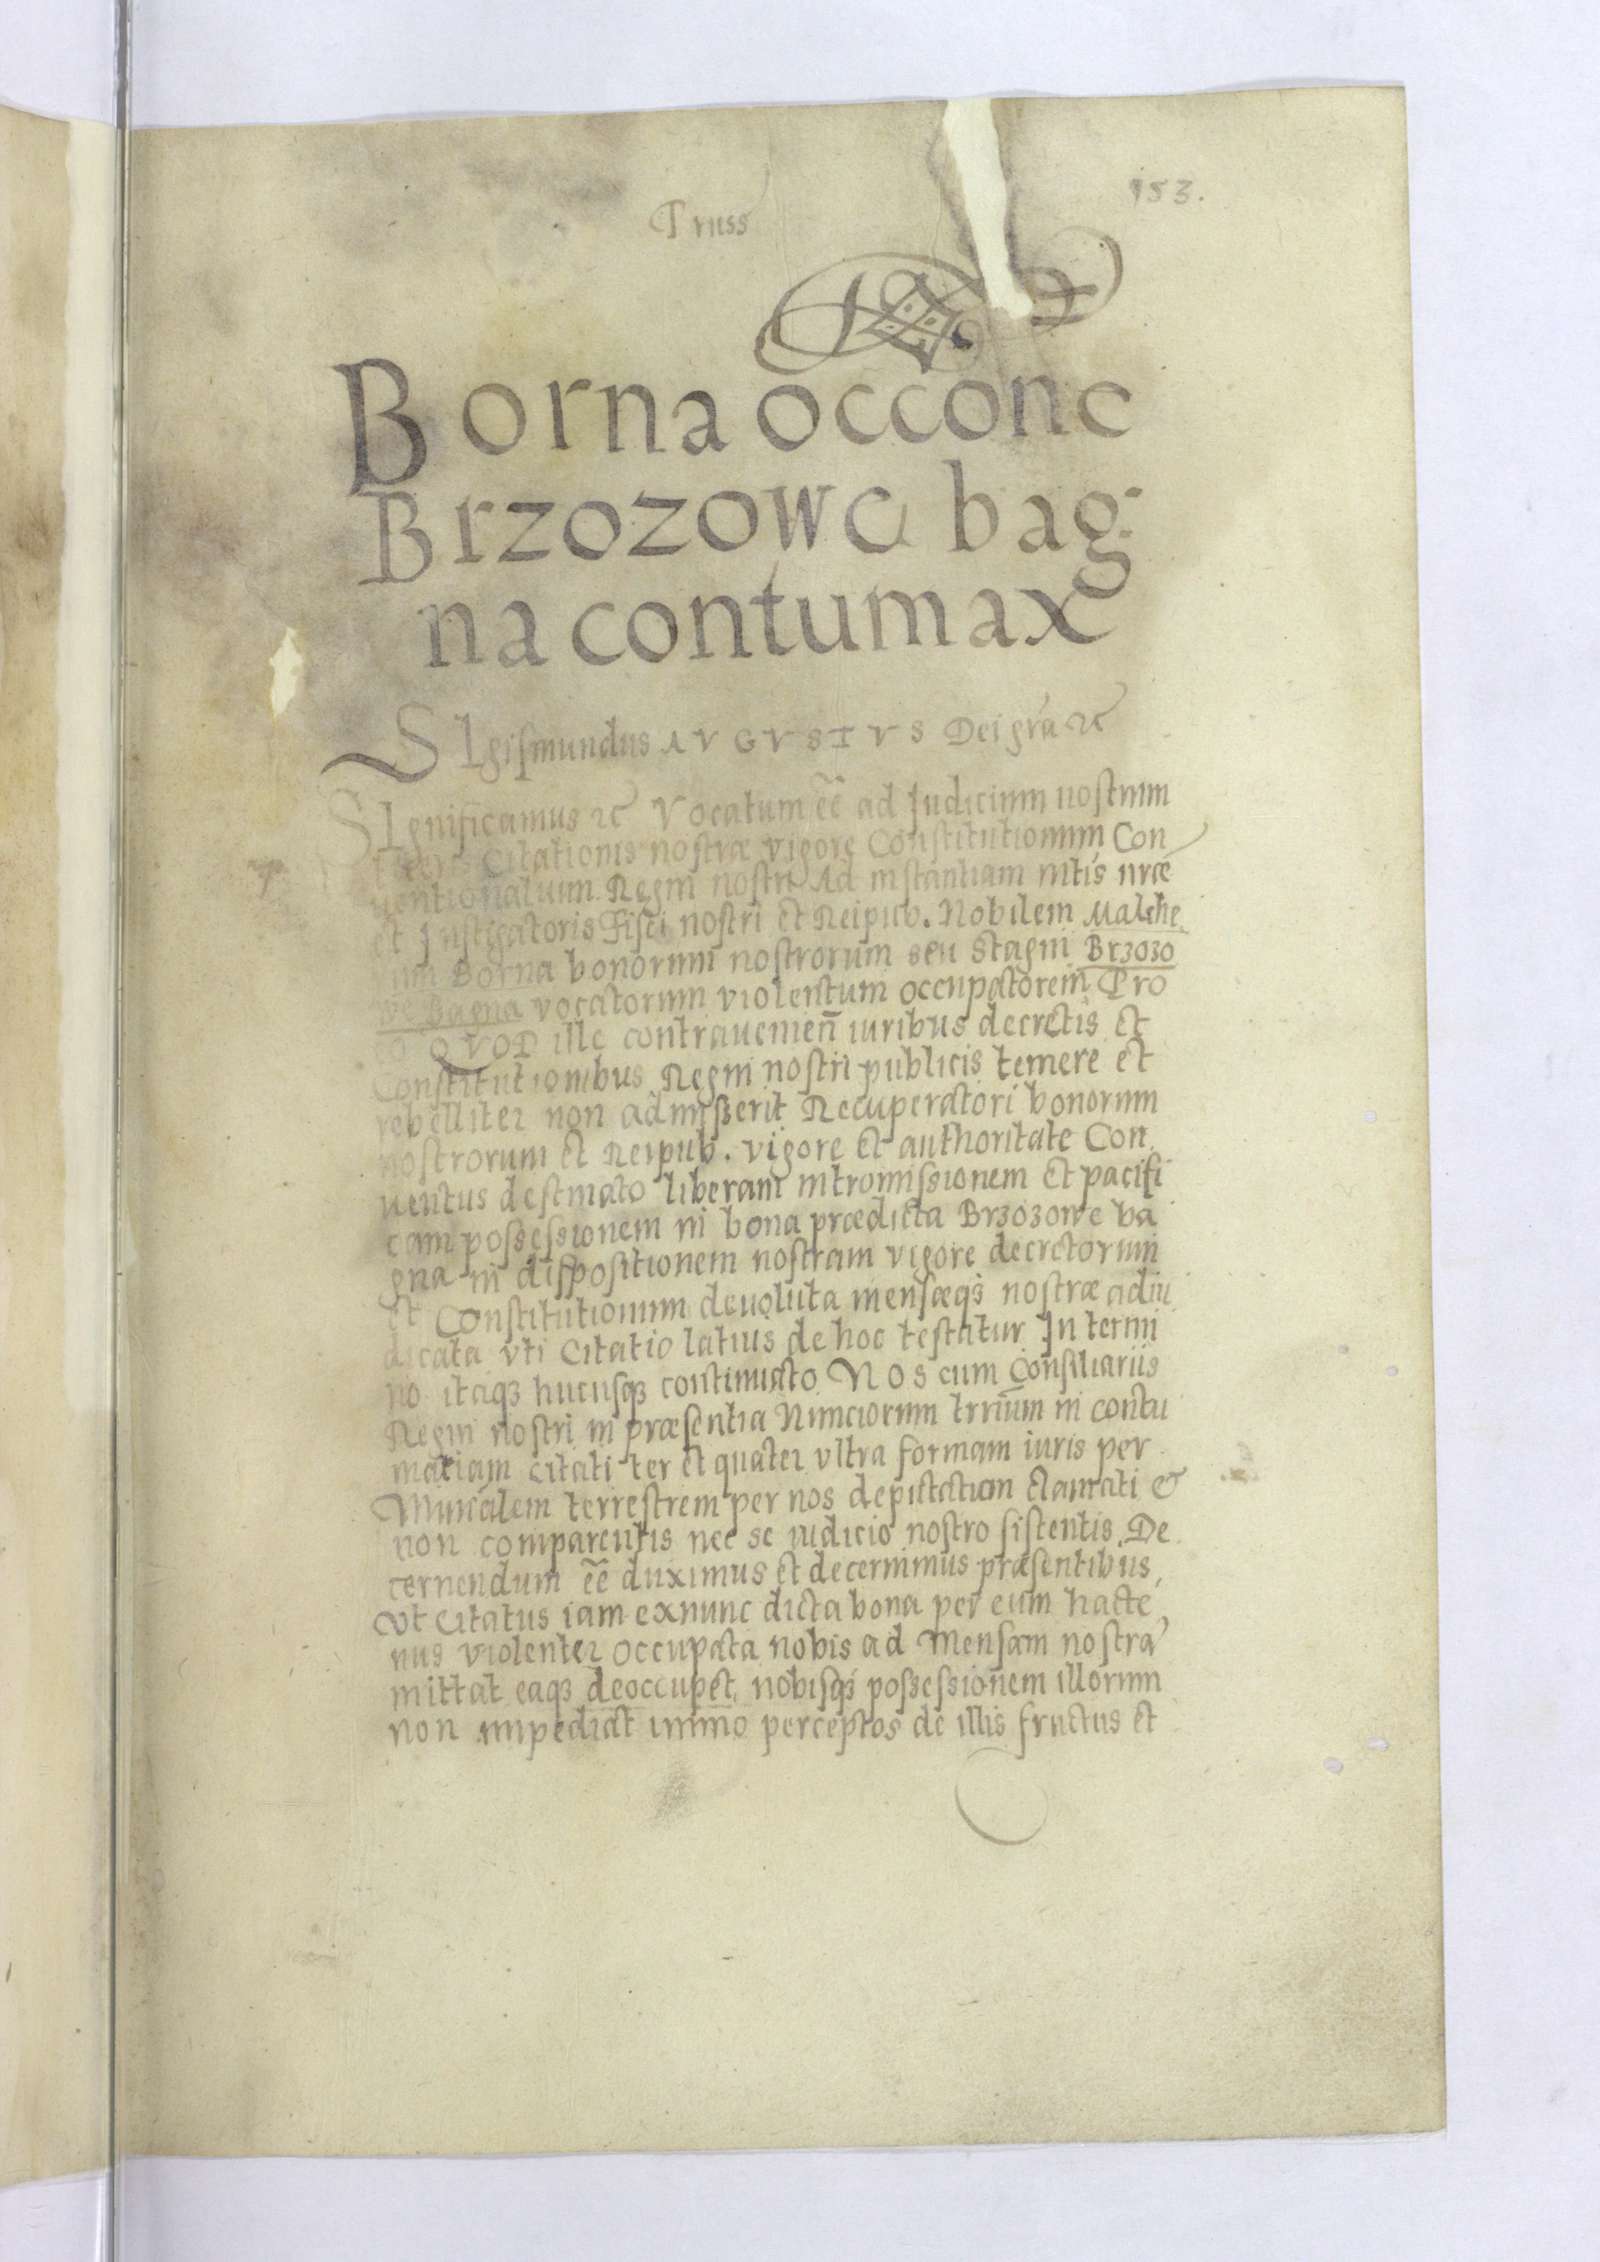 153.
Pruss
Borna occone
Brzozowe bag-
na contumax
SIgismundus AVGVSTVS Dei gra etc
SIgnificamus etc Vocatum eẽ ad Judicium nostrum
Citationis nostræ vigore Constitutionum Con
uentionalium Regni nostri Ad instantiam mtis nræ
et Instigatoris Fisci nostri et Reipub. Nobilem Malche
rum Borna bonorum nostrorum seu Stagni Brzozo
we Bagna vocatorum violentum occupatorem Pro
eo QVOD ille contraueniẽn iuribus decretis et
Constitutionibus Regni nostri publicis temere et
rebelliter non admisserit Recuperatori bonorum
nostrorum et Reipub. vigore et authoritate Con
uentus destinato liberam intromissionem et pacifi
cam possessionem in bona prædicta Brzozowe ba
gna in dispositionem nostram vigore decretorum
et Constitutionum deuoluta mensæq; nostræ adiu
dicata vti Citatio latius de hoc testatur In termi
no itaq; hucusq; continuato NOS cum Consiliariis
Regni nostri in præsentia Nunciorum trrium in contu
matiam citati ter et quater vltra formam iuris per
Minrãlem terrestrem per nos depictatum clamati &
non comparentis nec se iudicio nostro sistentis. De
cernendum eẽ duximus et decernimus præsentibus,
Vt Citatus iam exnunc dicta bona per eum hacte
nus violenter occupata nobis ad Mensam nostrã
mittat eaq; deoccupet, nobisq; possessionem illorum
non impediat immo perceptos de illis fructus et